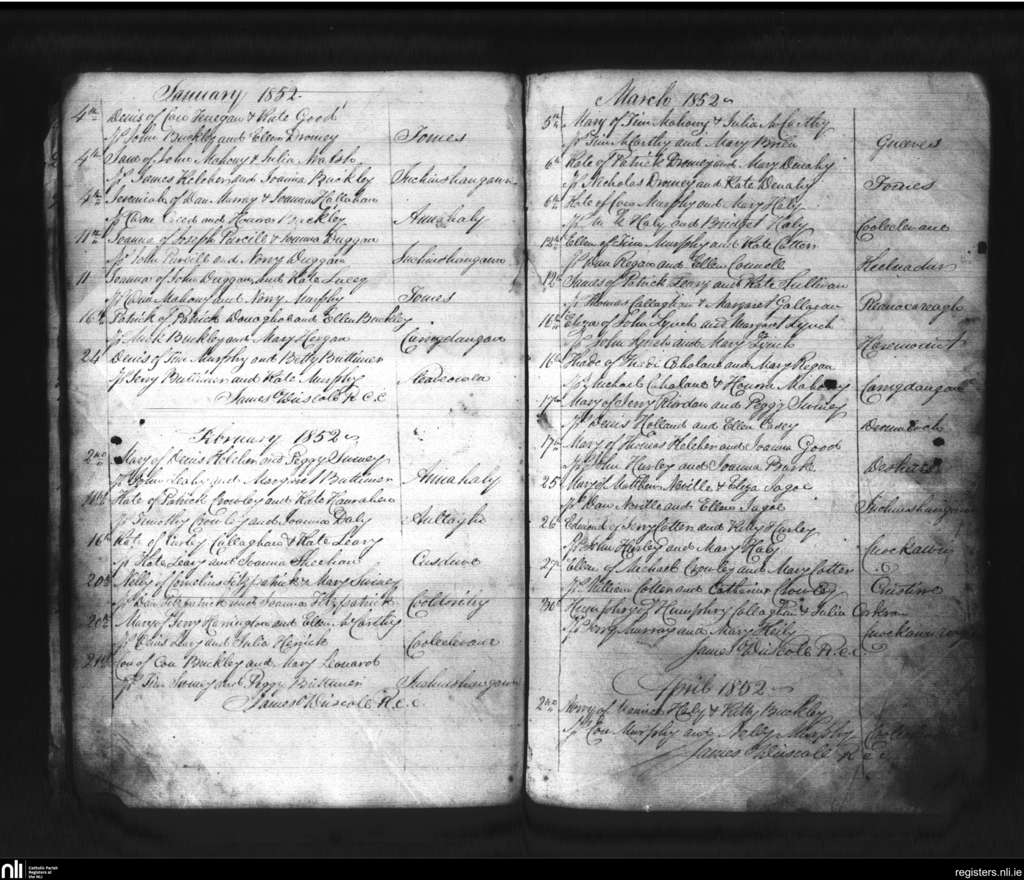 January 1852
4th Denis of Con Finegan & Kate Good
Sp John Buckley and Ellen Dromey Tomes
4th Jane of John Mahony & Julia
Sp James Kelcher and Joanna Buckley Inchinshangawn
4th Jeremiah of Dan Murray & Joanna Hallahan
Sp Dan Creed and Honora Buckley Annahaly
11th Joanna of Joseph Purcill & Joanna Duggan
Sp John Purcill and Nory Duggan Inchinshangawn
11 Joanna of John Duggan and Kate Lucey
Sp Con Mahony and Nory Murphy Tomes
16th Patrick of Patrick Donaghoe and Ellen Buckley
Sp Mick Buckley and Mary Horgan
24 Denis of Tim Murphy and Betty Buttimer
Sp Jerry Buttimer and Kate Murphy
James Driscoll R.C.C
February 1852
2nd Mary of Denis Kelcher and Peggy Sweeny
Sp John Leahy and Margaret Buttimer Annahaly
10th Kate of Patrick Crowley and Kate Hanrahan
Sp Timothy Crowley and Joanna Daly Aultaghe
16th Kate of Curley Callaghan & Kate Leary
Sp Kate Leary and Joanna Sheehan
20th Nelly of Cornelius Fitzpatrick & Mary Sweeny
Sp Dan Fitzpatrick and Joanna Fitzpatrick
20th Mary of Jerry Harrington and Ellen McCarthy
Sp Denis Leary and Julia Herrick Cooleclevane
21st Con of Con Buckley and Mary Leonard
Sp Tim and Peggy Buttimer Inchinshangawn
James Driscoll R.C.C
March 1852
5th Mary of Tim Mahony & Julia McCarthy
Sp Tim McCarthy and Mary Brien Gneeves
6th Kate of Patrick Dromey and Mary Denahy
Sp Nicholas Dromey and Kate Denahy Tomes
6th Kate of Con Murphy and Mary Haly
Sp Haly and Bridget Haly Cooleclevane
12th Ellen of Tim Murphy and Kate Cotter
Sp Dan Regan and Ellen Connell
12th James of Patrick Leary and Kate Sullivan
Sp Thomas Callaghan & Margaret Gallavan
16th Eliza of John Lynch and Margaret Lynch
Sp John Lynch and Mary Lynch
16th Thade of Thade Cohalane and Mary Regan
Sp Michael Cohalane & Honora Mahony
17th Mary of Jerry Riordan and Peggy Sweeny
Sp Denis Holland and Ellen Casey
17th Mary of Thomas Kelcher and Joanna Good
Sp John Hurley and Joanna Burke
25 Mary of Matthew Neville & Eliza Jagoe
Sp Dan Neville and Ellen Jagoe
26th Edmond of Jerry Cotter and Kitty Hurley
Sp John Hurley and Mary Haly
27th Ellen of Michael Crowley and Mary Cotter
Sp William Cotter and Catherine Crowley
30th Humphry of Humphry Callaghan & Julia Corkran
Sp Jerry Murray and Mary Heily
James Driscoll R.C.C
April 1852
2nd Nory of Haly & Kitty Buckley
Sp Con Murphy and Nelly Murphy
James Driscoll R.C.C
nli
Catholic Parish
Registers at
the NLI
registers.nli.ie